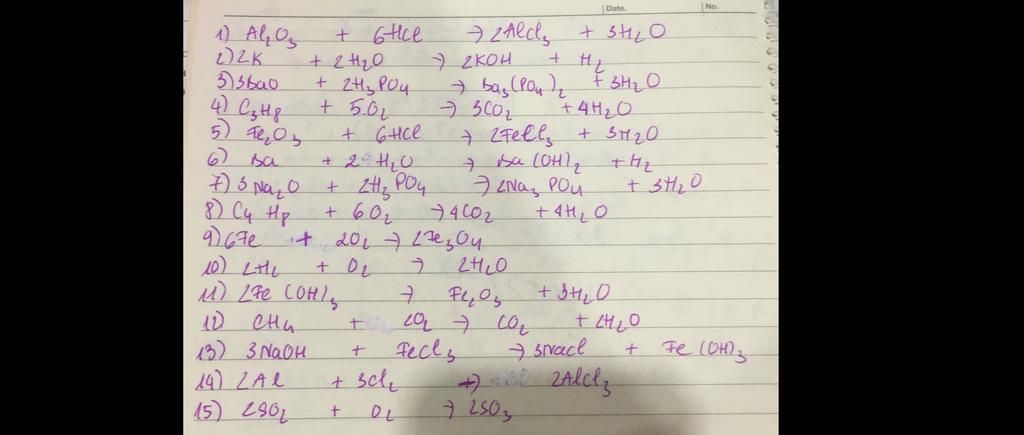 Date. No.
1) Al₂O₃ + 6HCl → 2AlCl₃ + 3H₂O
2) 2K + 2H₂O → 2KOH + H₂
3) 3BaO + 2H₃PO₄ → Ba₃(PO₄)₂ + 3H₂O
4) C₃H₈ + 5O₂ → 3CO₂ + 4H₂O
5) Fe₂O₃ + 6HCl → 2FeCl₃ + 3H₂O
6) Ba + 2H₂O → Ba(OH)₂ + H₂
7) 3Na₂O + 2H₃PO₄ → 2Na₃PO₄ + 3H₂O
8) C₄H₈ + 6O₂ → 4CO₂ + 4H₂O
9) 6Fe + 2O₂ → 2Fe₃O₄
10) 2H₂ + O₂ → 2H₂O
11) 2Fe(OH)₃ → Fe₂O₃ + 3H₂O
12) CH₄ + 2O₂ → CO₂ + 2H₂O
13) 3NaOH + FeCl₃ → 3NaCl + Fe(OH)₃
14) 2Al + 3Cl₂ → 2AlCl₃
15) 2SO₂ + O₂ → 2SO₃